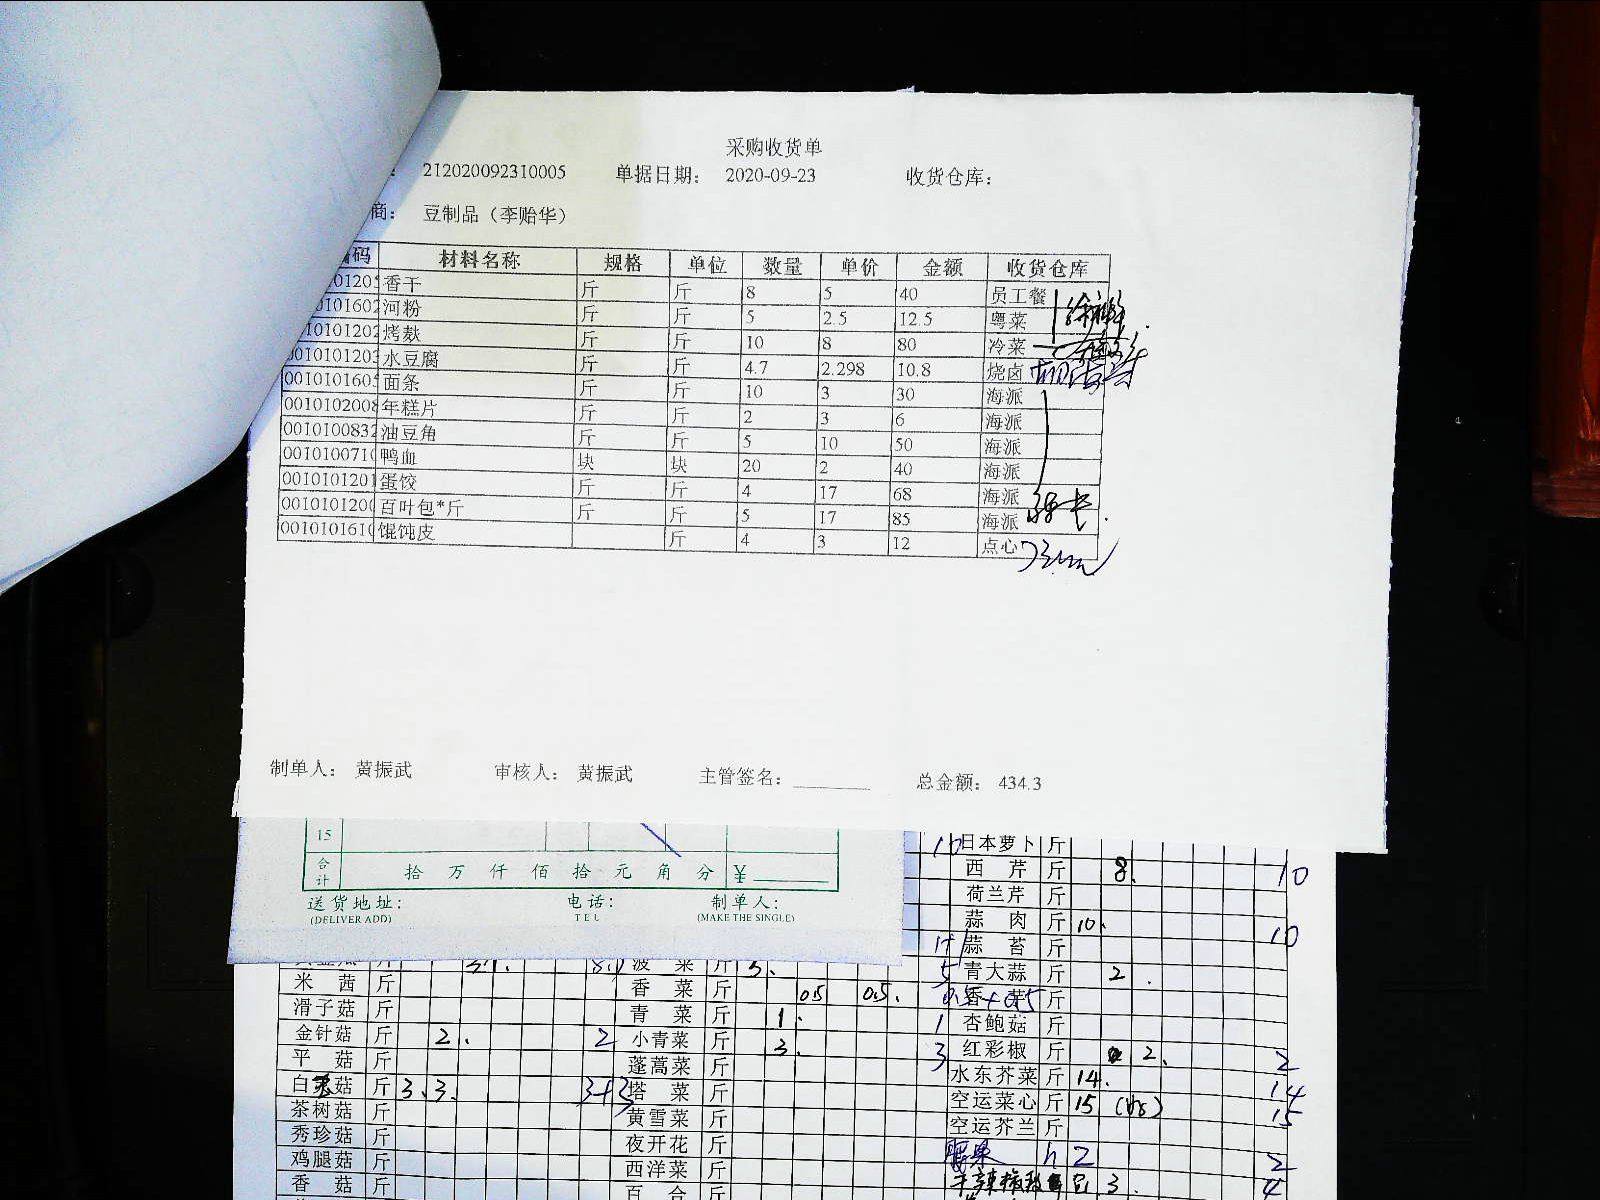 采购收货单
212020092310005 单据日期： 2020-09-23 收货仓库：
商： 豆制品（李贻华）
码 材料名称 规格 单位 数量 单价 金额 收货仓库
香干 斤 斤 8 5 40 员工餐
河粉 斤 斤 5 2.5 12.5 粤菜
烤麸 斤 斤 10 8 80 冷菜
水豆腐 斤 斤 4.7 2.298 10.8 烧卤
0010101605 面条 斤 斤 10 3 30 海派
0010102008 年糕片 斤 斤 2 3 6 海派
0010100832 油豆角 斤 斤 5 10 50 海派
001010071 鸭血 块 块 20 2 40 海派
001010120 蛋饺 斤 斤 4 17 68 海派
001010120 百叶包*斤 斤 斤 5 17 85 海派
001010161 馄饨皮 斤 4 3 12 点心
制单人： 黄振武 审核人： 黄振武 主管签名： 总金额： 434.3
15
合计 拾 万 仟 佰 拾 元 角 分 ¥
送货地址： 电话： 制单人：
(DELIVER ADD) TEL (MAKE THE SINGLE)
日本萝卜 斤
西芹 斤 8. 10
荷兰芹 斤
蒜肉 斤 10. 10
蒜苔 斤
菠菜 斤 5. 5 青大蒜 斤 2.
米茜 斤 香菜 斤 0.5 0.5. 斤
滑子菇 斤 青菜 斤 1. 1 杏鲍菇 斤
金针菇 斤 2. 2 小青菜 斤 3. 3 红彩椒 斤 2. 2
平菇 斤 蓬蒿菜 斤 水东芥菜 斤 14. 14
菇 斤 3.3. 3+3 塔菜 斤 空运菜心 斤 15 15
茶树菇 斤 黄雪菜 斤 空运芥兰 斤
秀珍菇 斤 夜开花 斤 2 2
鸡腿菇 斤 西洋菜 斤 3. 4
香菇 斤 百合 斤